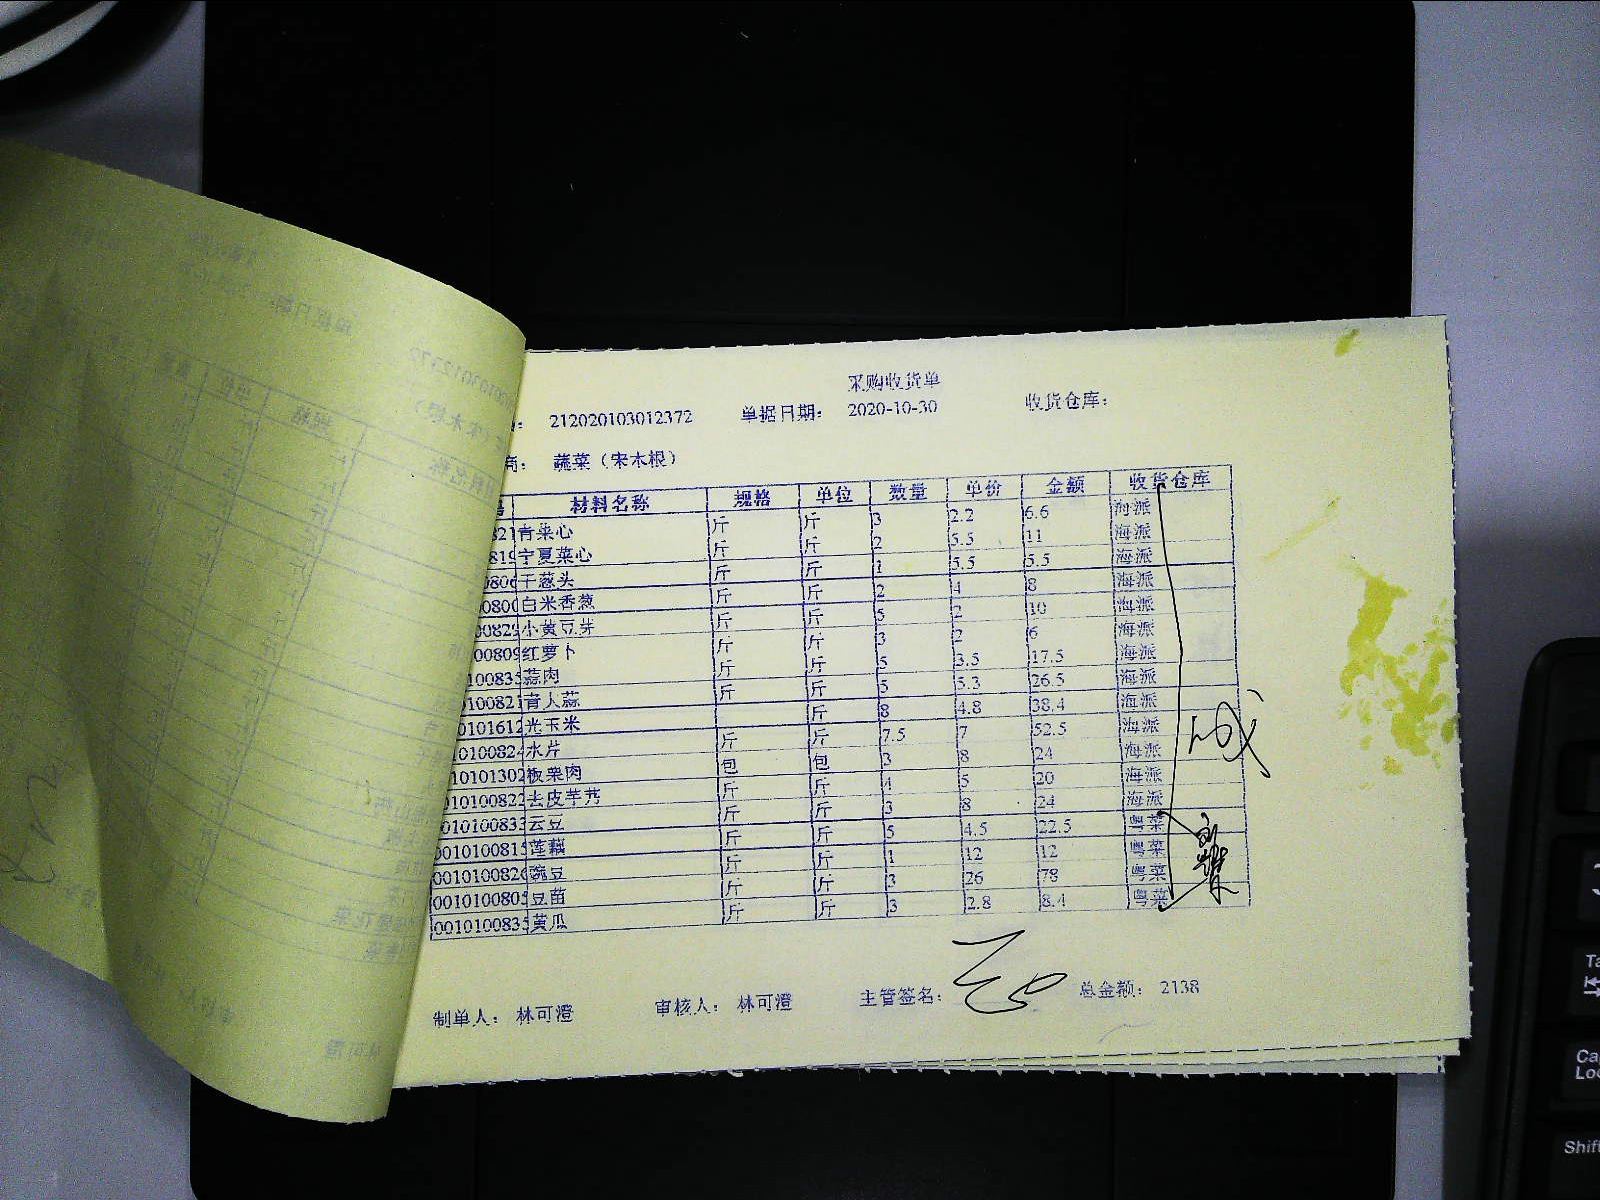 采购收货单
212020103012372 单据日期: 2020-10-30 收货仓库:
商: 蔬菜（宋木根）
材料名称 规格 单位 数量 单价 金额 收货仓库
821 青菜心 斤 斤 3 2.2 6.6 海派
819 宁夏菜心 斤 斤 2 5.5 11 海派
0806 干葱头 斤 斤 1 5.5 5.5 海派
0800 白米香葱 斤 斤 2 4 8 海派
00829 小黄豆芽 斤 斤 5 2 10 海派
00809 红萝卜 斤 斤 3 2 6 海派
100835 蒜肉 斤 斤 5 3.5 17.5 海派
0100821 青大蒜 斤 斤 5 5.3 26.5 海派
0101612 光玉米 斤 8 4.8 38.4 海派
10100824 水芹 斤 斤 7.5 7 52.5 海派
10101302 板栗肉 包 包 3 8 24 海派
010100822 去皮芋艿 斤 斤 4 5 20 海派
010100833 云豆 斤 斤 3 8 24 海派
0010100815 莲藕 斤 斤 5 4.5 22.5 粤菜
0010100826 豌豆 斤 斤 1 12 12 粤菜
0010100805 豆苗 斤 斤 3 26 78 粤菜
0010100835 黄瓜 斤 斤 3 2.8 8.4 粤菜
制单人: 林可澄 审核人: 林可澄 主管签名: 总金额: 2138
Shift